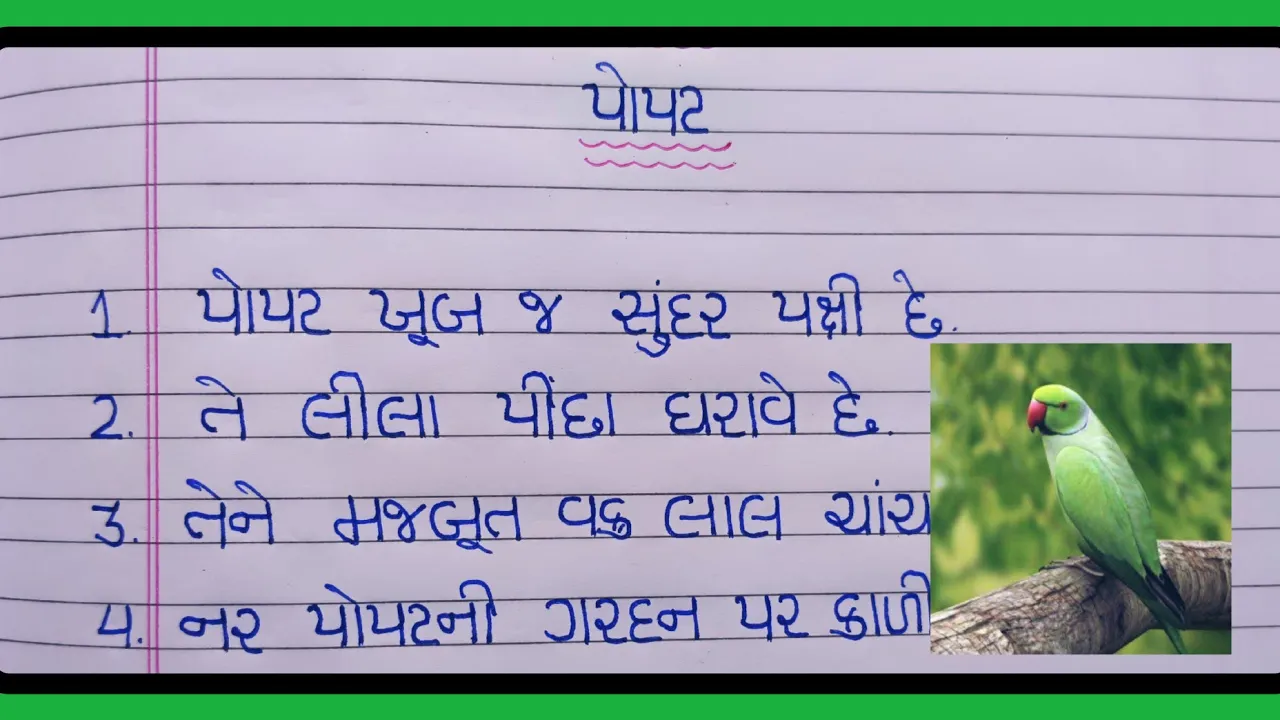 પોપટ
1. પોપટ ખૂબ જ સુંદર પક્ષી છે.
2. તે લીલા પીંછા ધરાવે છે.
3. તેને મજબૂત વક્ર લાલ ચાંચ
4. નર પોપટની ગરદન પર કાળી